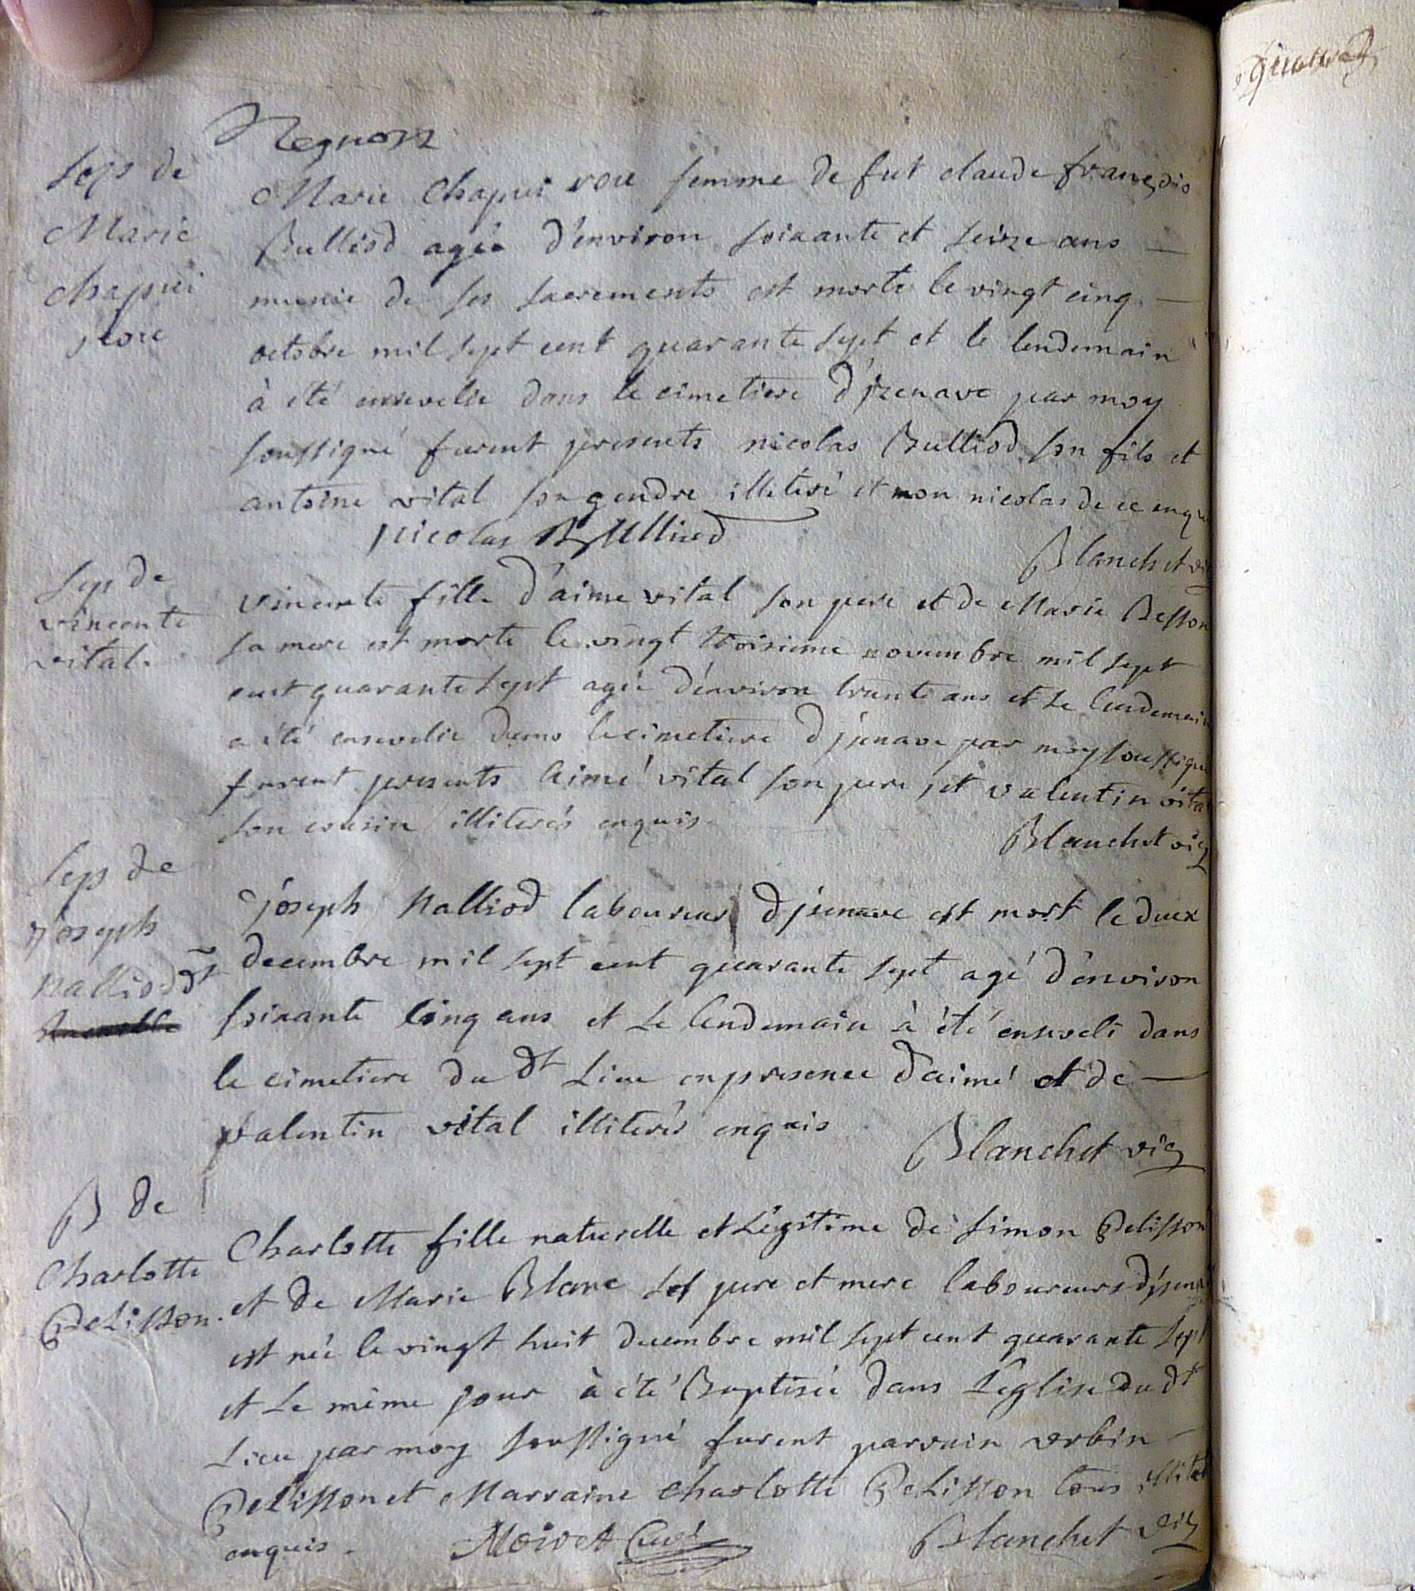 Seps de
Marie
Chapui
Marie Chapui femme de fut claude françois
Bulliod agée d'environ soixante et seize ans
munie de ses sacrements est morte le vingt cinq
octobre mil sept cent quarante sept et le lendemain
à été ensevelie dans le cimetiere d'jzenave par moy
soussigné furent presents nicolas Bulliod son fils et
antoine vital son gendre illiteré et non nicolas de ce enquis
nicolas Bulliod
Blanchet vic
Sep de
vincente
vital
vincente fille d'aime vital son pere et de Marie Besson
sa mere est morte le vingt troisieme novembre mil sept
cent quarante sept agée d'environ trente ans et le lendemain
a été ensevelie dans le cimetiere d'jsenave par moy soussigné
furent presents Aimé vital son pere et valentin vital
son cousin illiterés enquis
Blanchet vic
Sep de
joseph
Nalliod dt
joseph Nalliod laboureur d'jsenave est mort le deux
decembre mil sept cent quarante sept agé d'environ
soixante cinq ans et le lendemain à été enseveli dans
le cimetiere du dt Lieu en presence d'aimé et de
valentin vital illiterés enquis
Blanchet vic
B de
Charlotte
Pelisson
Charlotte fille naturelle et Légitime de simon Pelisson
et de Marie Blanc ses pere et mere laboureurs d'jsenave
est née le vingt huit decembre mil sept cent quarante sept
et le même jour à été Baptisée dans L'eglise du dt
Lieu par moy soussigné furent parrain urbin
Pelisson et Marraine Charlotte Pelisson tous illiterés
enquis.
Moiret Curé
Blanchet vic